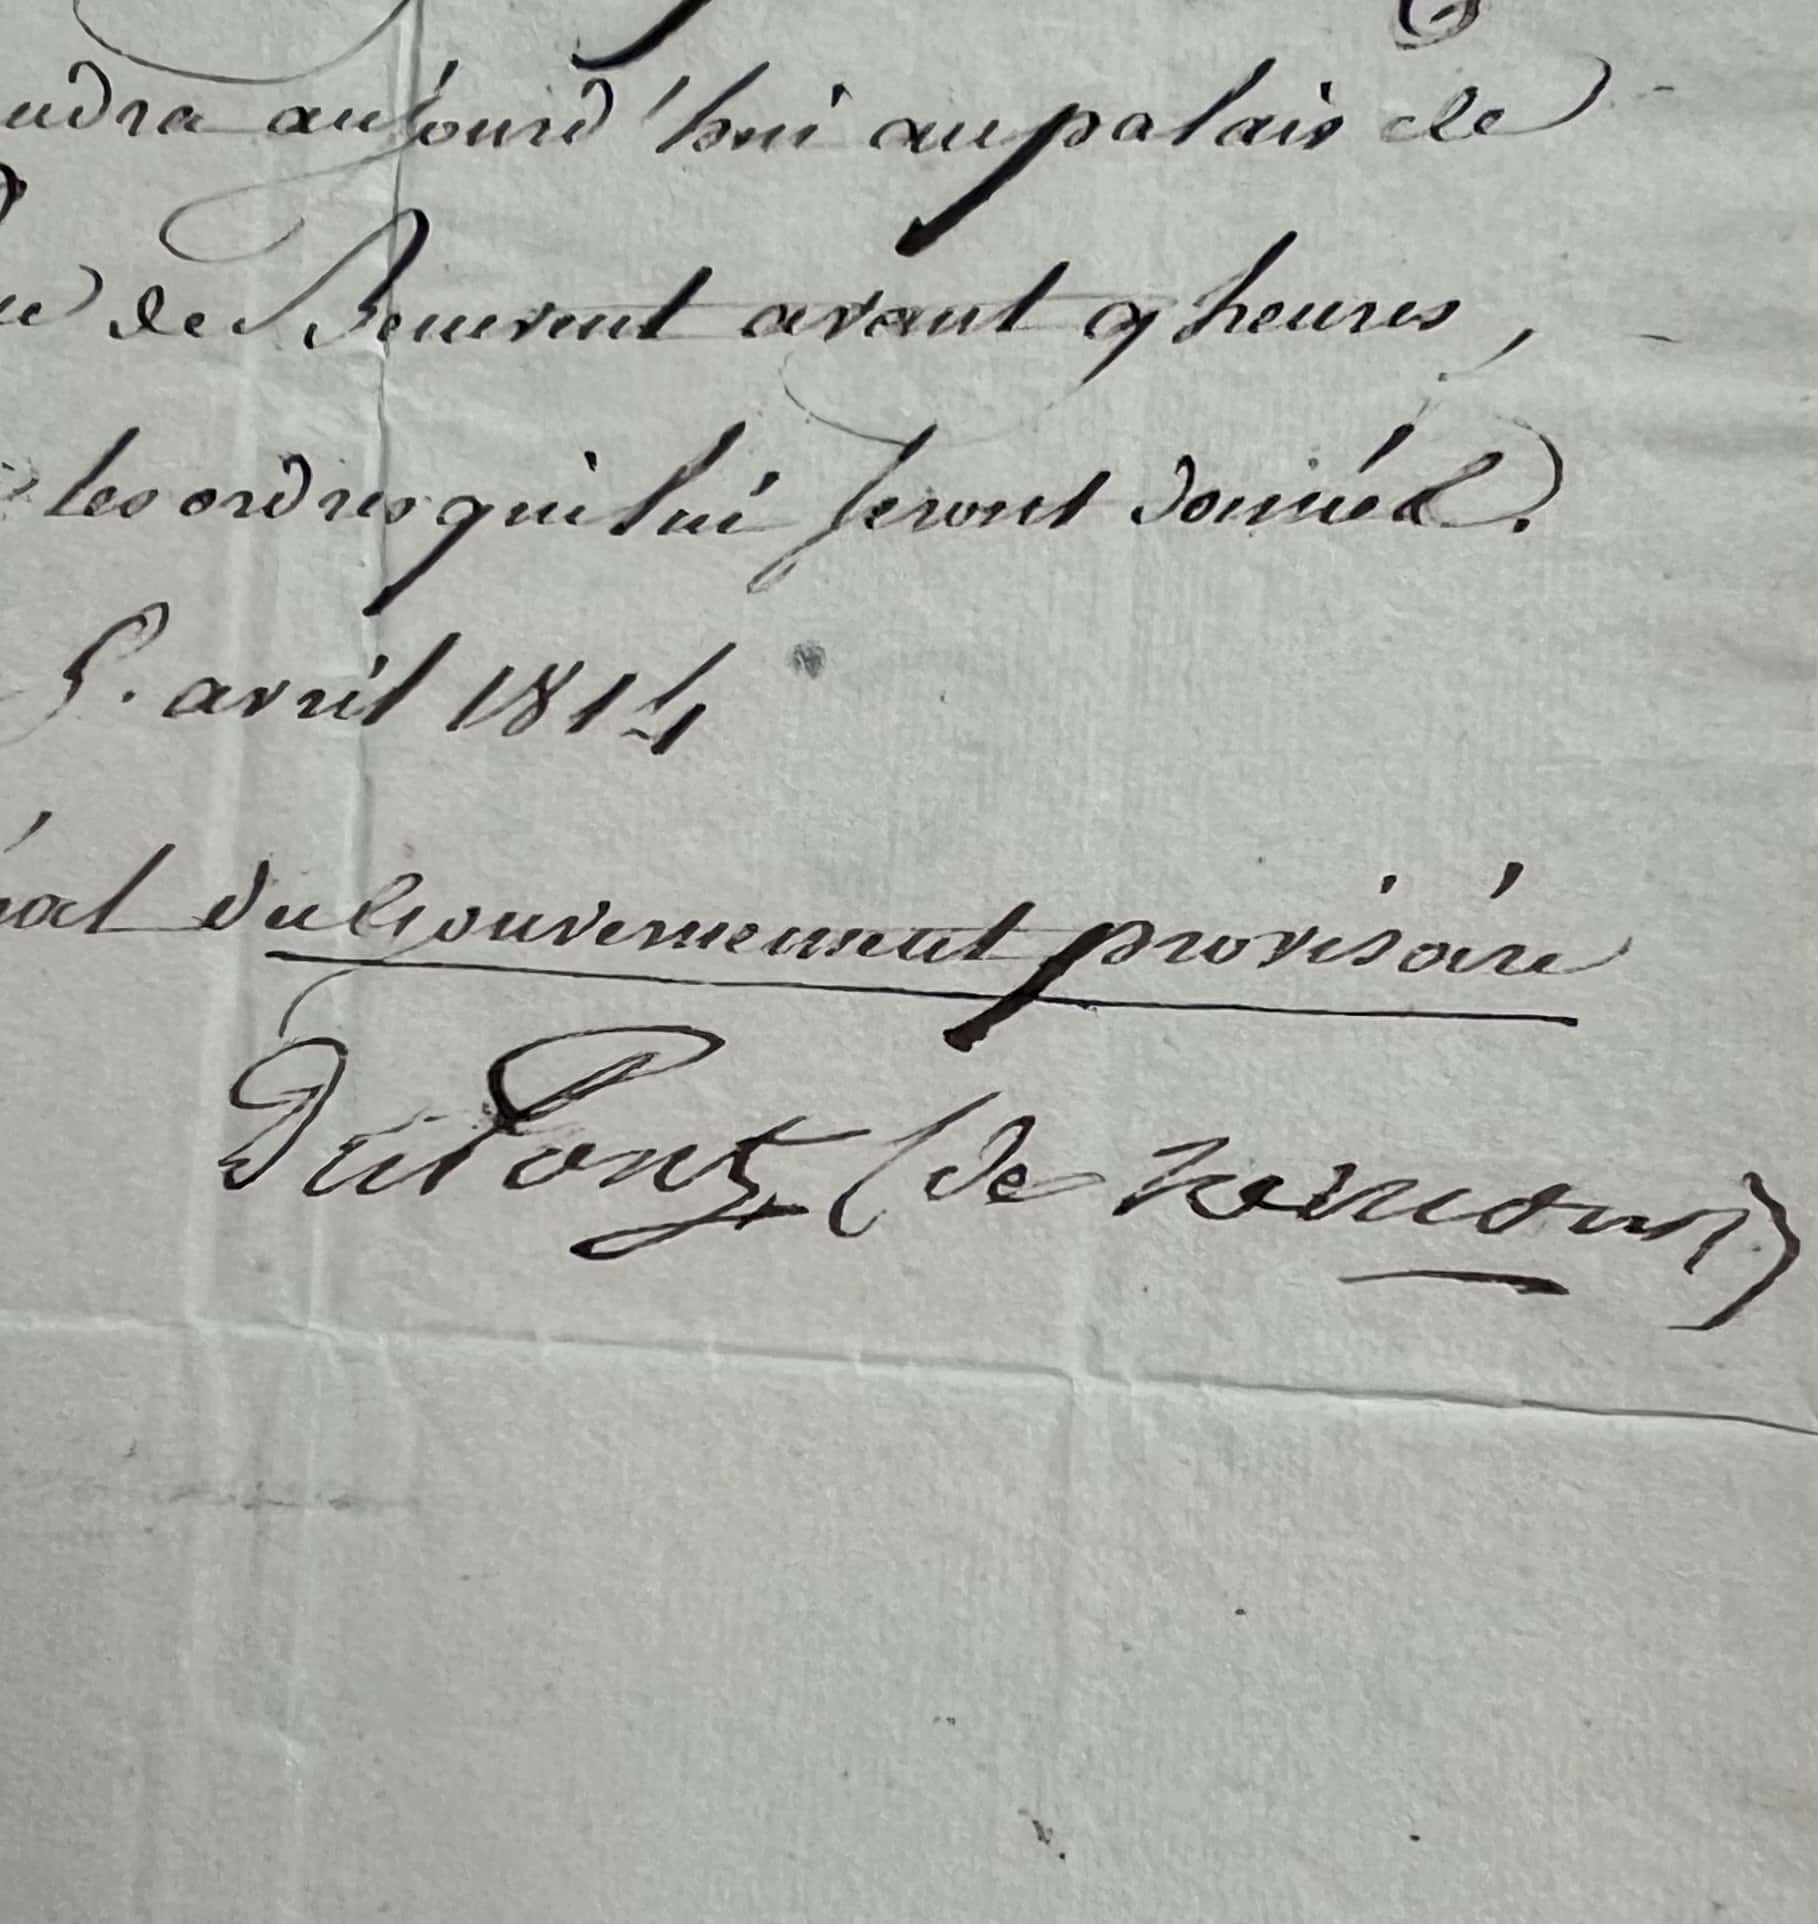 udra aujourd'hui au palais de
de Benevent avant 9 heures,
les ordres qui lui seront donnés.
5. avril 1814
du Gouvernement provisoire
DuPont (de Nemours)